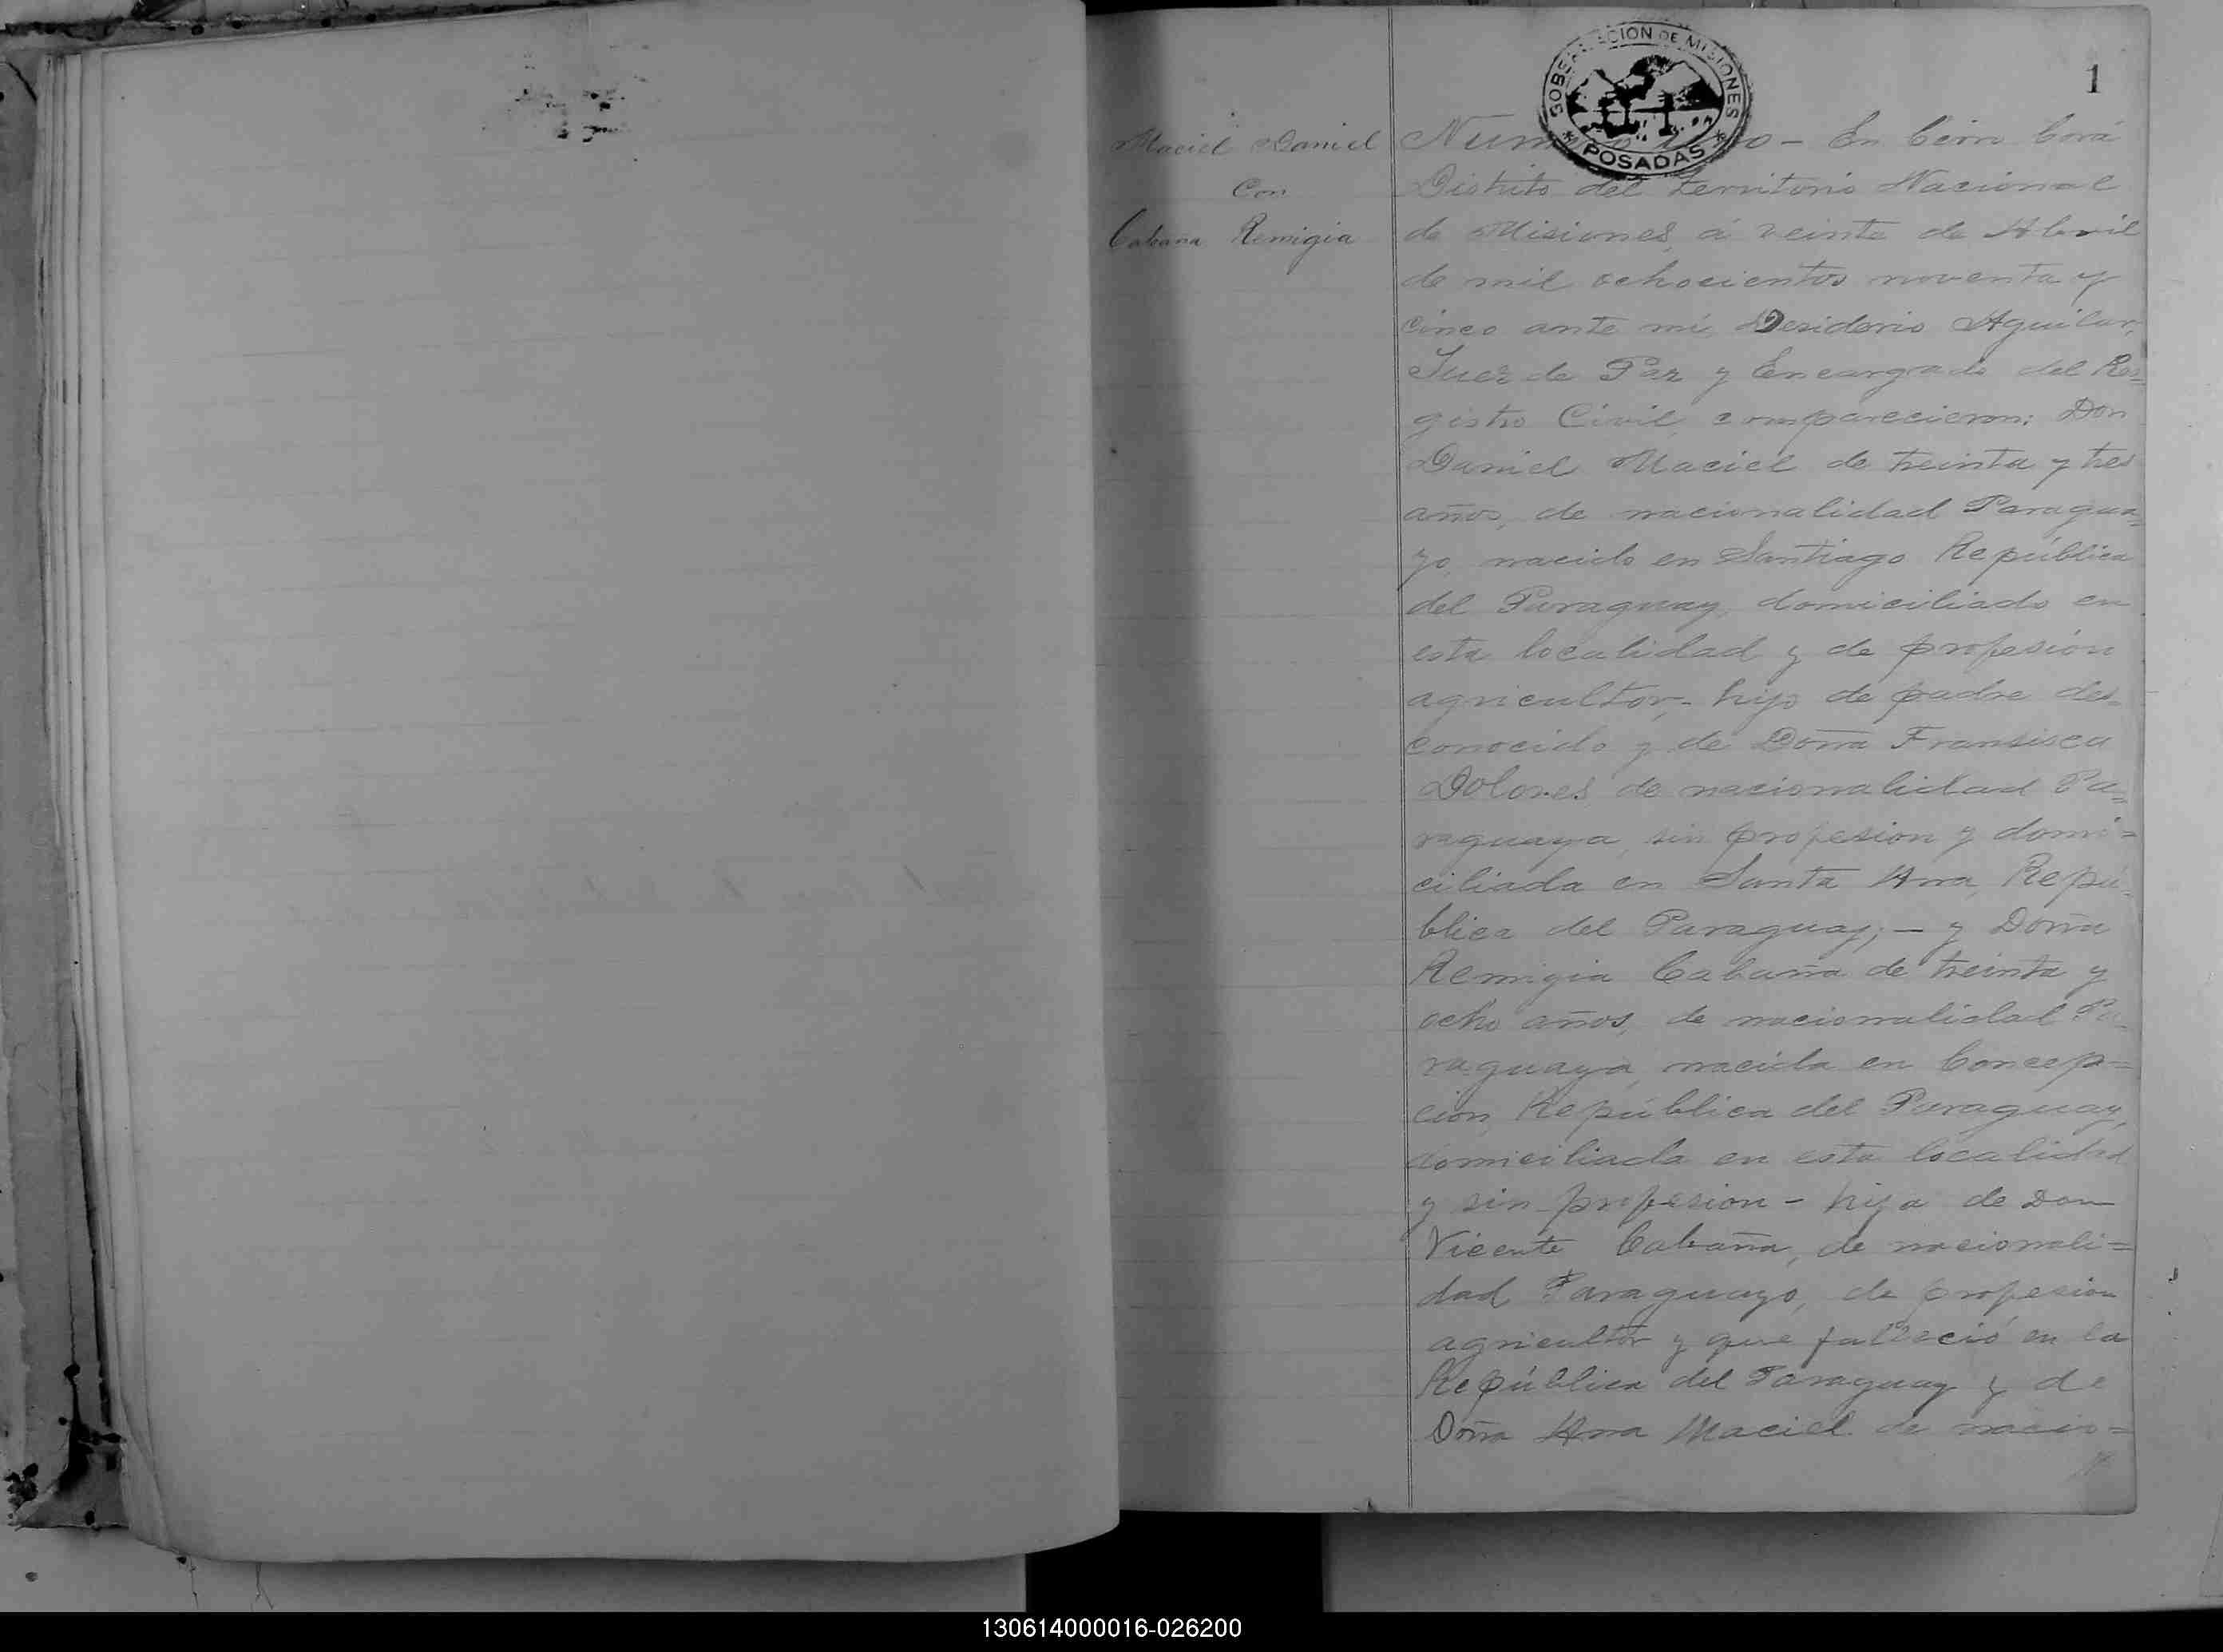 GOBERNACION DE MISIONES
* POSADAS *
1
Maciel Daniel
Con
Cabaña Remigia
Numero uno - En Cerro Corá
Distrito del territorio Nacional
de Misiones, á veinte de Abril
de mil ochocientos noventa y
cinco ante mi, Desiderio Aguilar,
Juez de Paz y Encargado del Re=
gistro Civil, comparecieron: Don
Daniel Maciel de treinta y tres
años, de nacionalidad Paragua=
yo, nacido en Santiago República
del Paraguay, domiciliado en
esta localidad y de profesión
agricultor,- hijo de padre des=
conocido y de Doña Fransisca
Dolores de nacionalidad Pa=
raguaya, sin profesion y domi=
ciliada en Santa Ana, Repú=
blica del Paraguay; - y Doña
Remigia Cabaña de treinta y
ocho años, de nacionalidad Pa=
raguaya, nacida en Concep=
cion, República del Paraguay,
domiciliada en esta localidad
y sin profesion - hija de Don
Vicente Cabaña, de nacionali=
dad Paraguayo, de profesion
agricultor y que falleció en la
República del Paraguay y de
Doña Ana Maciel de nacio=
130614000016-026200